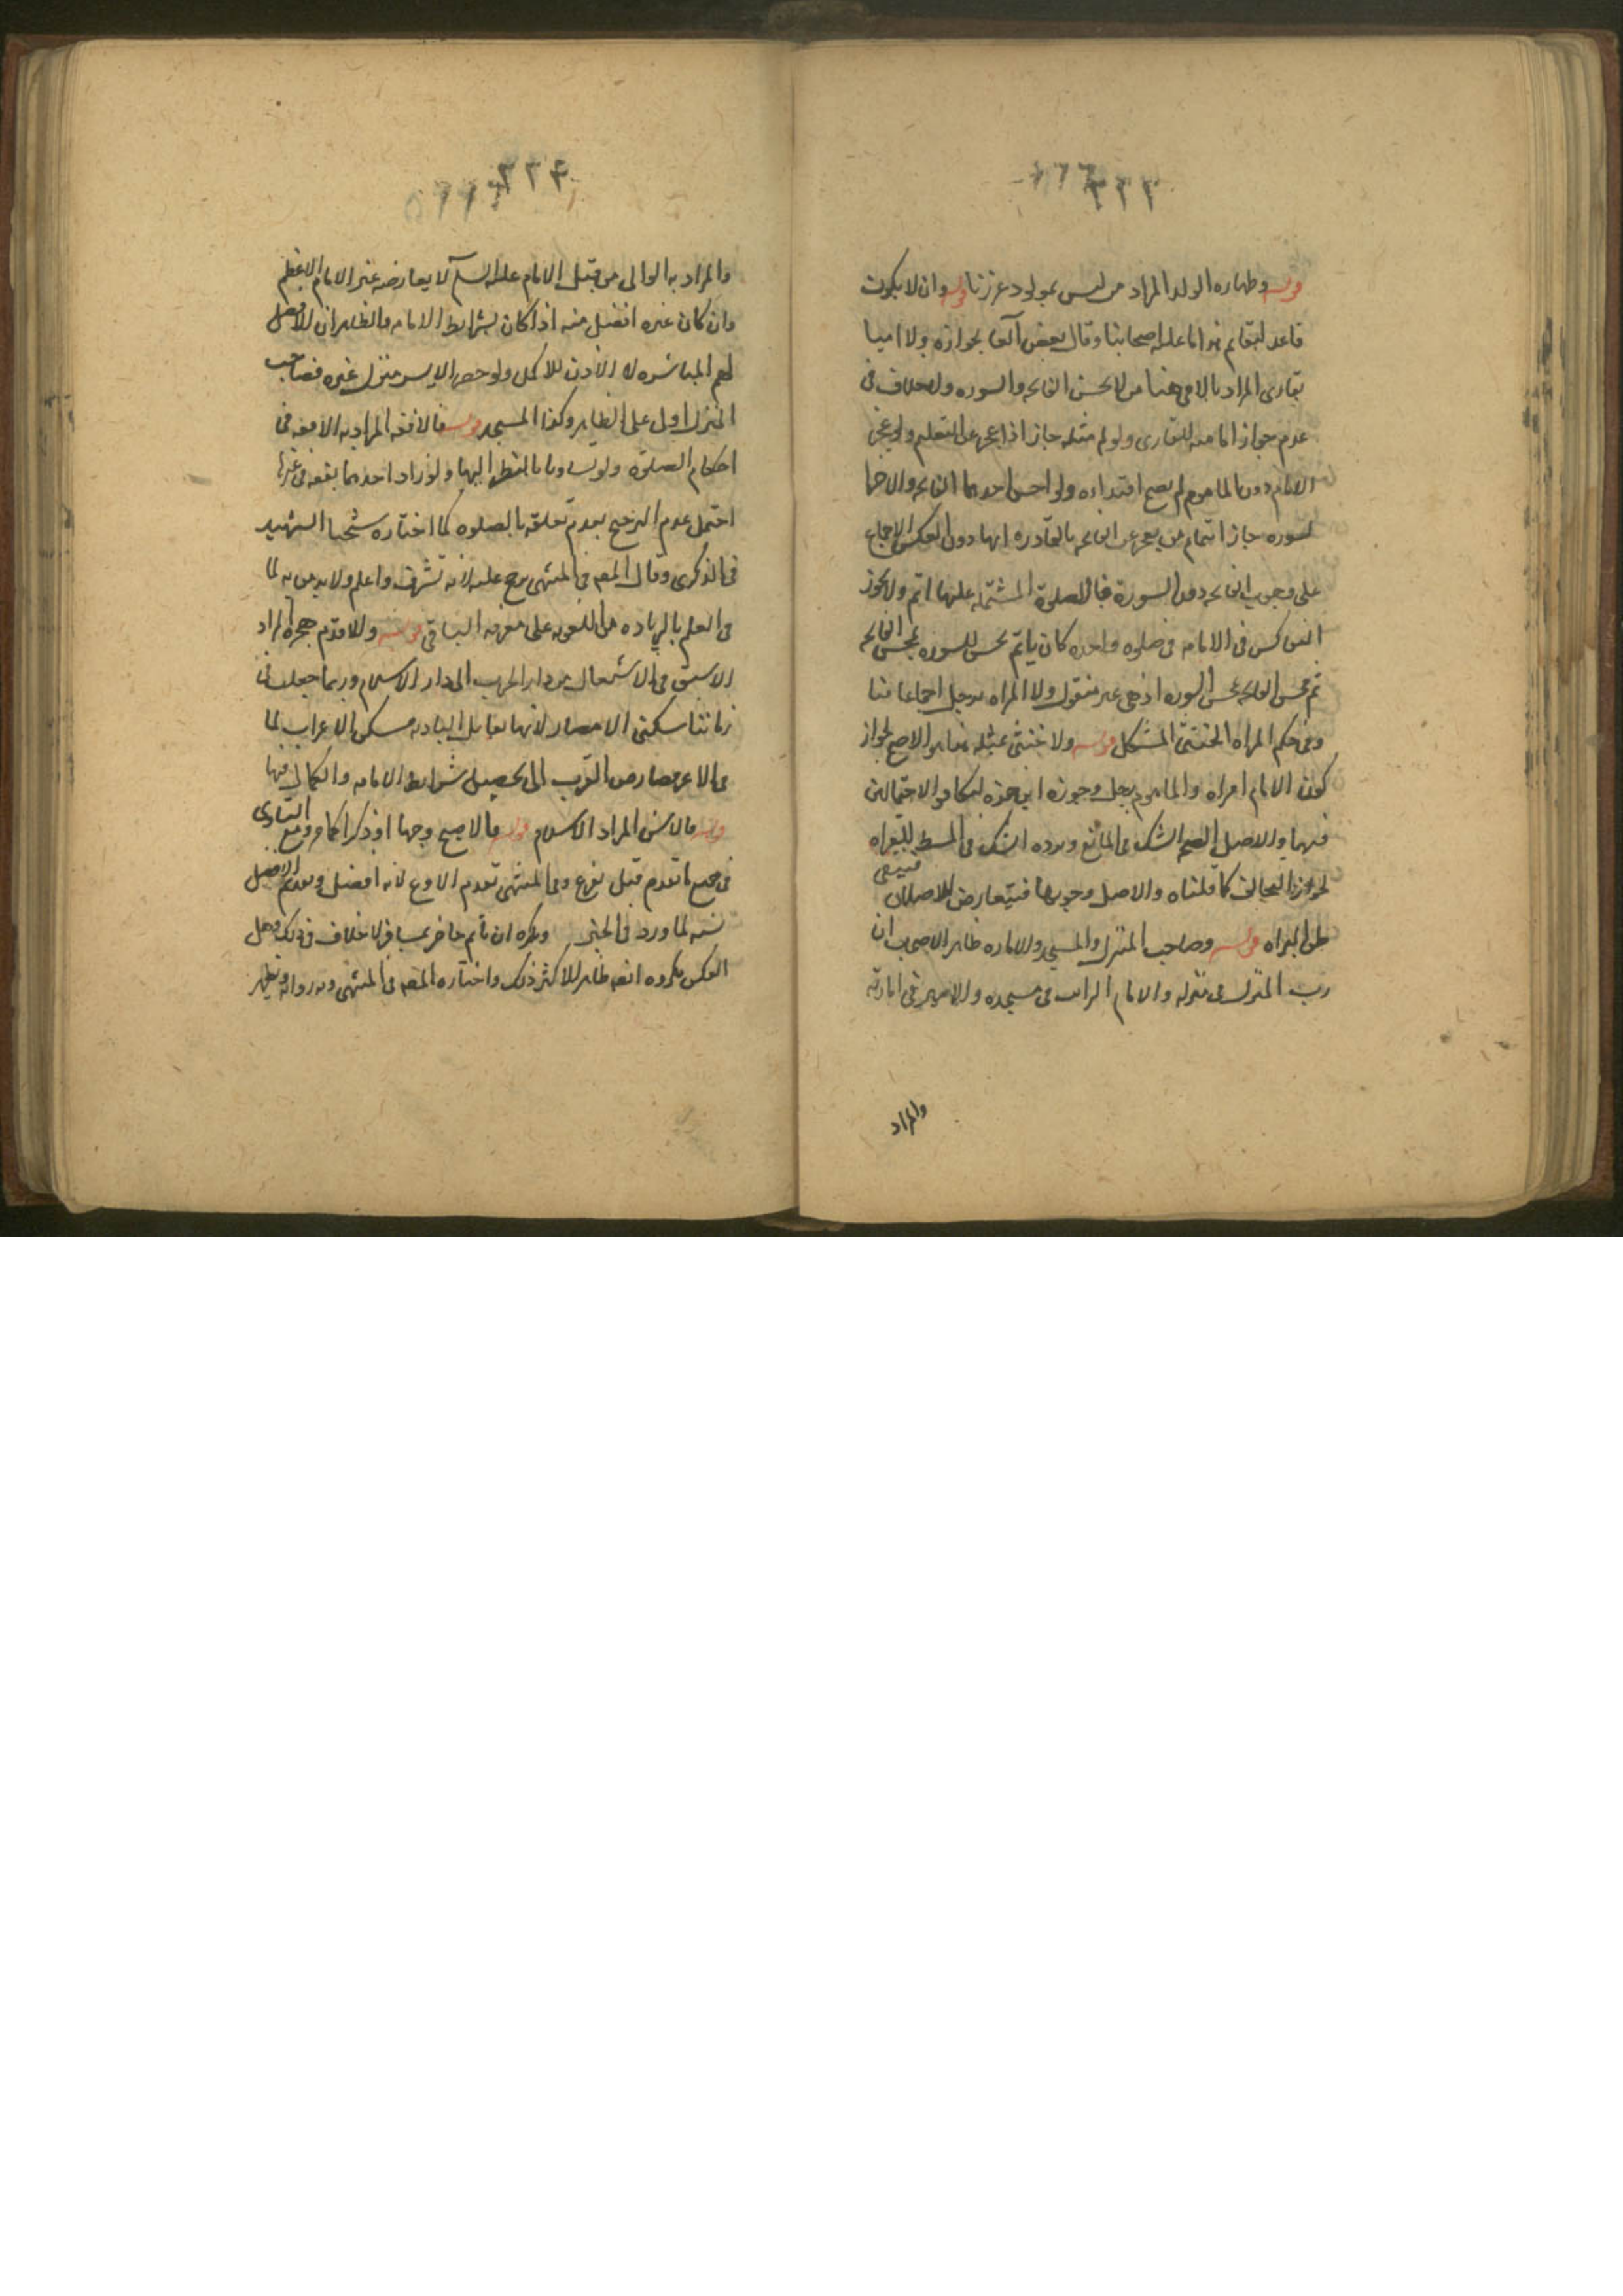 ٢٢٣
قوله وطهاره الولد المراد من ليس بمولود عن زنا قوله وان لا يكون
قاعدا بقائم هذا ما عليه اصحابنا وقال بعض بجوازه ولا اميا
بقارى المراد بالامى هنا من لا يحسن الفاتحه والسوره ولا خلاف فى
عدم جواز امامته للقارى ولو ام مثله جاز اذا عجز عن التعليم ولو عجز
الامام دون الماموم لم يصح اقتداءه ولو احسن احدهما الفاتحه والاخر
السوره جاز ائتمام من يعجز عن الفاتحه بالقادر عليها دون العكس للاجماع
على وجوب الفاتحه دون السورة فالصلوة المشتمله عليها اتم ولا يجوز
التعاكس فى الامامه فى صلوه واحده كان ياتم محسن السوره بمحسن الفاتحه
ثم محسن الفاتحه بمحسن السوره اذ هى غير منقول ولا المراه برجل اجماعا منا
وفى حكم المراه الخنثى المشكل قوله ولا خنثى بمثله هذا هو الاصح لجواز
كون الامام امراه والماموم رجل وجوزه ابن حمزه لتكافو الاحتمالين
فيهما والاصل الصحه الشك فى المانع ويرده الشك فى المسقط للقراه
لجواز التخالف كما قلناه والاصل وجوبها فيتعارض الاصلان فيبقى
القراه قوله وصاحب المنزل والمسجد والاماره ظاهر الاصحاب ان
رب المنزل فى منزله والامام الراتب فى مسجده والامير فى امارته
والمراد
٢٢٤
والمراد به الوالى من قبل الامام عليه السلم لا يعارضه غير الامام الاعظم
وان كان غيره افضل منه اذا كان بشرايط الامامه والظاهر ان الافضل
لهم المباشره لا الاذن للاكمل ولو حضر الامير منزل غيره فصاحب
المنزل اولى على الظاهر وكذا المسجد قوله فالافقه المراد به الافقه فى
احكام الصلوه ولو تساويا بالنظر اليها ولو زاد احدهما بفقه فى غيرها
احتمل عدم الترجيح لعدم تعلقه بالصلوه كما اختاره شيخنا الشهيد
فى الذكرى وقال المصنف فى المنتهى يرجح عليه لانه اشرف واعلم ولا بد من
فى العلم بالزياده من على معرفه الباقى قوله والاقدم هجره المراد
الاسبق فى الانتقال من دار الحرب الى دار الاسلام وربما جعلت فى
زماننا سكنى الامصار لانها تقابل الباديه مسكن الاعراب لما
فى الامصار من القرب الى تحصيل شرايط الامامه والكمال فيها
قوله فالاسن المراد الاسلام قوله فالاصبح وجها او ذكرا كما مر ومع التساوى
فى جميع ما تقدم قيل يقرع وفى المنتهى تقديم الاورع لانه افضل وتقديم الافضل
لما ورد فى الخبر ويكره ان ياتم حاضر بمسافر لا خلاف فى ذلك وهل
العكس مكروه ايضا ظاهر الاكثر ذلك واختاره المصنف فى المنتهى وبه روايه ويظهر